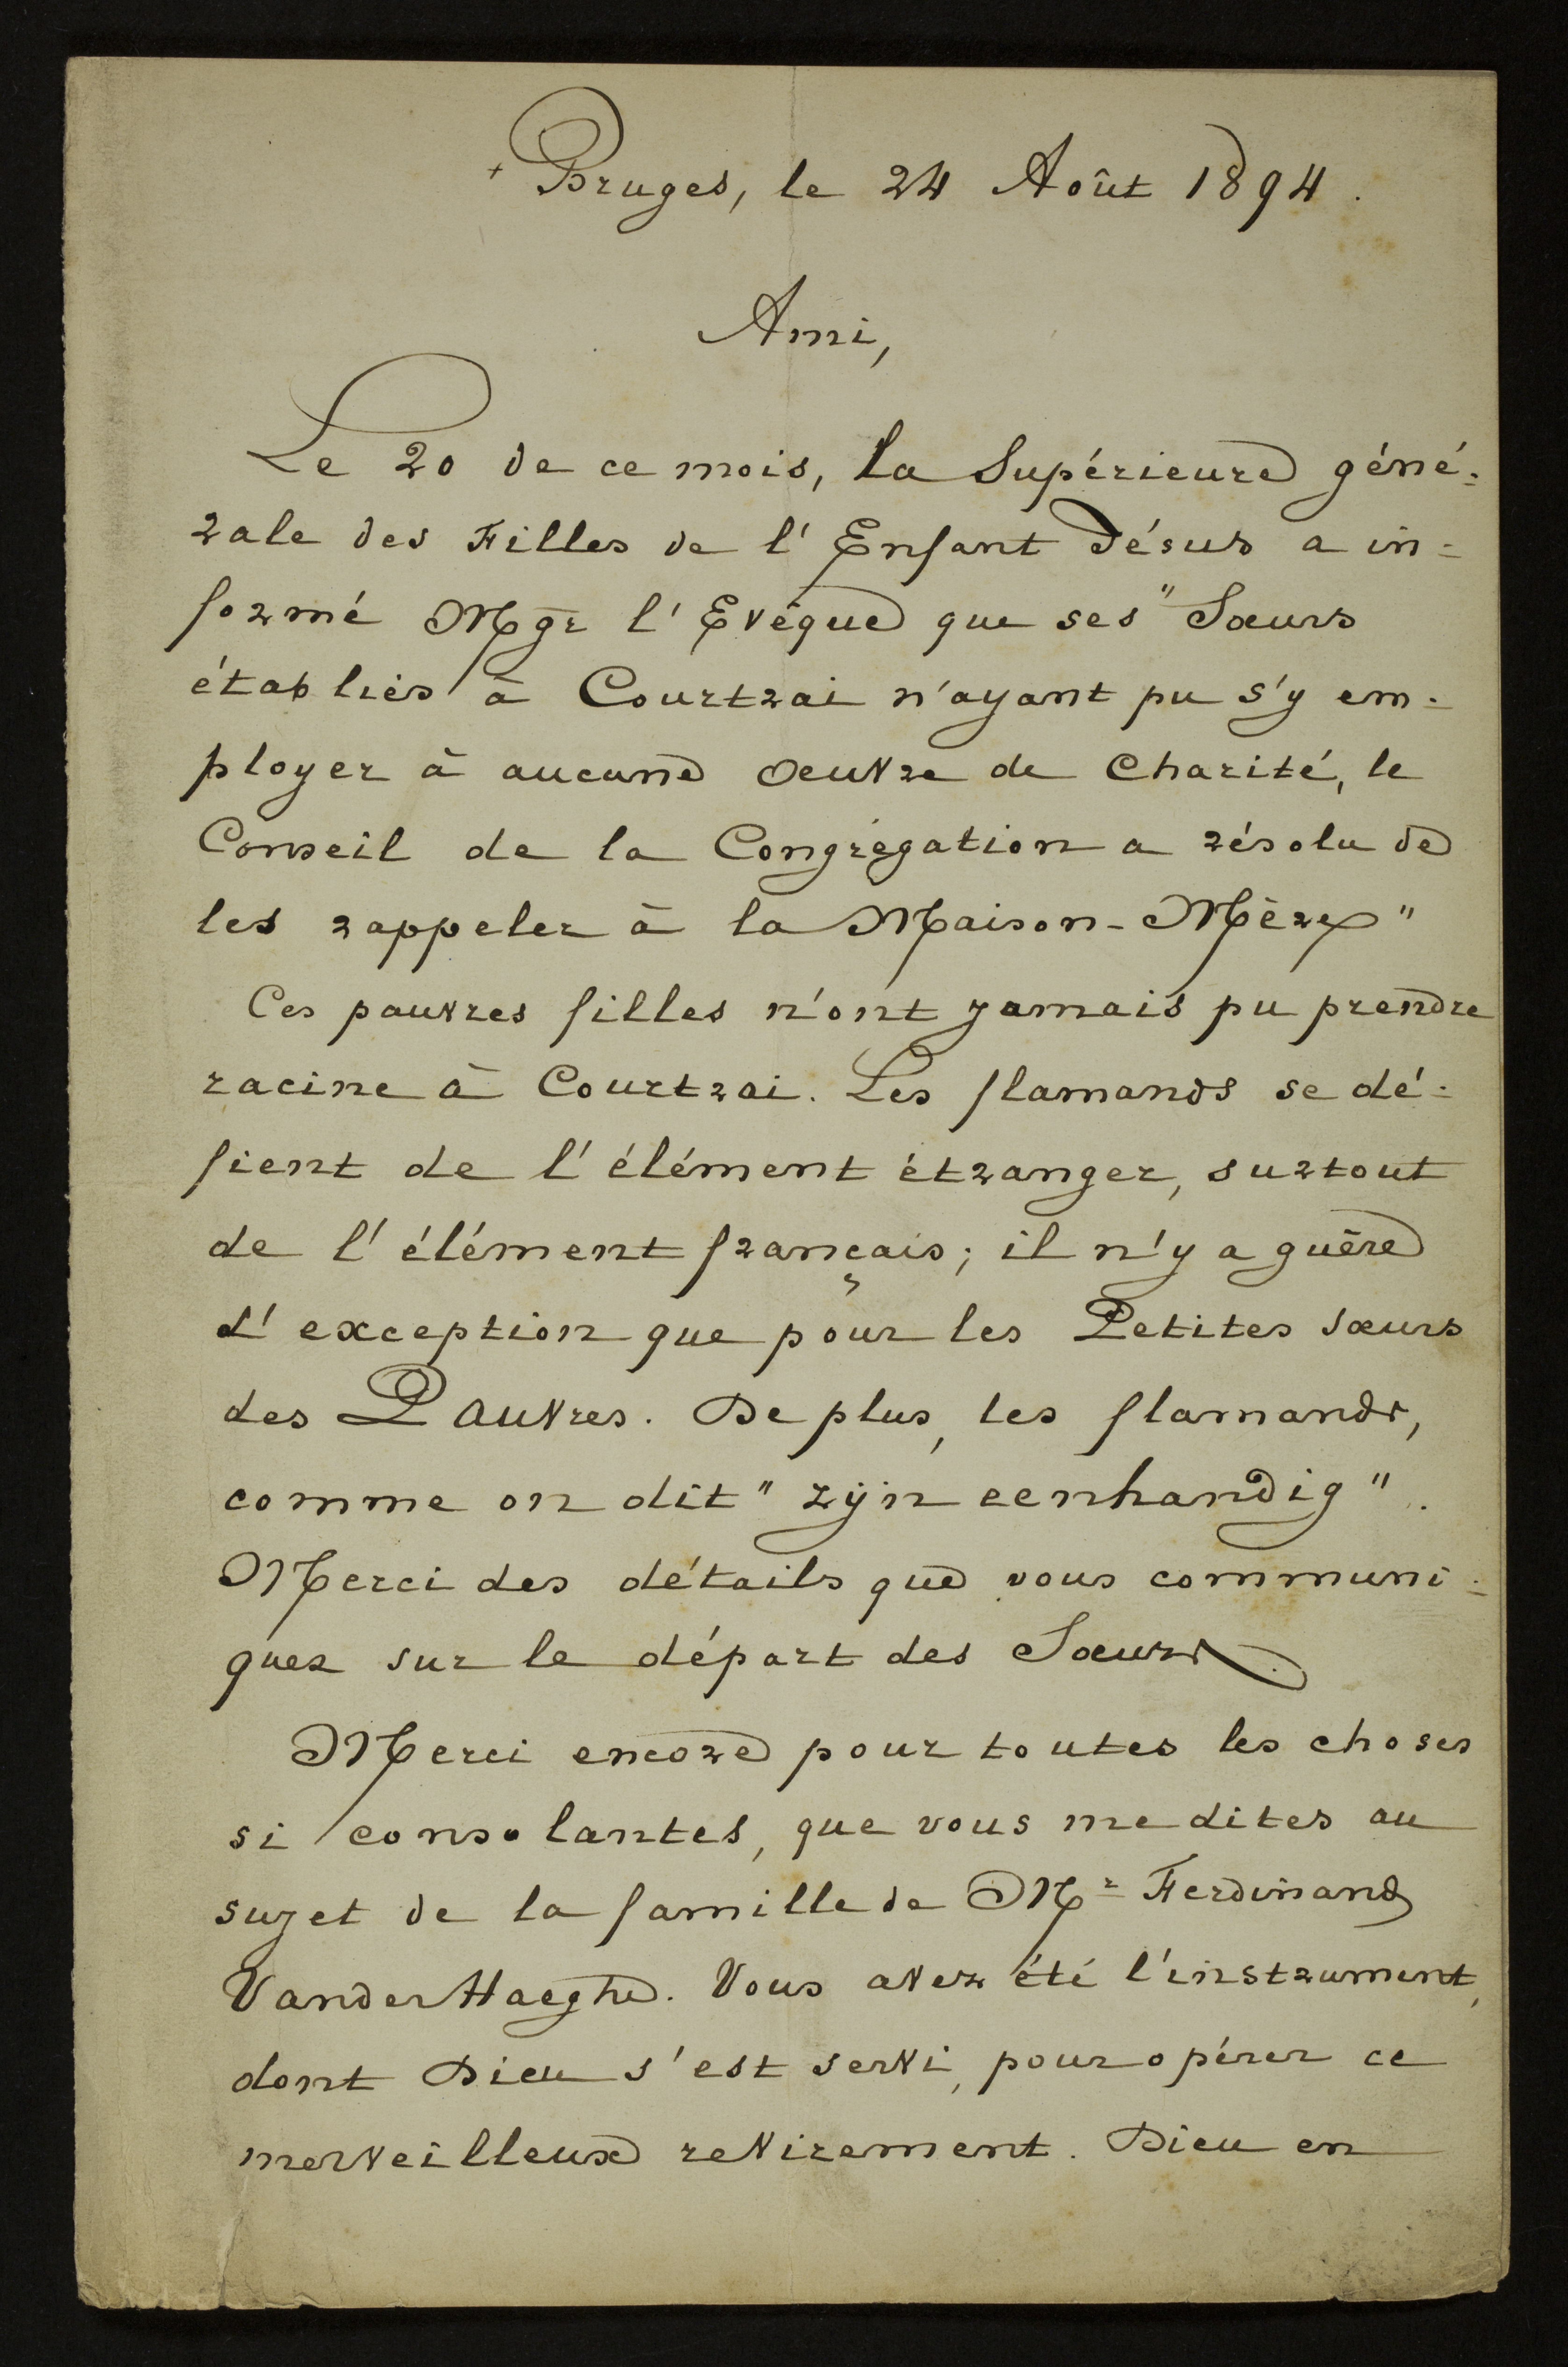 + Bruges, le 24 Août 1894.
Ami,
Le 20 de ce mois, la Supérieure géné-
rale des Filles de l'Enfant Jésus a in-
formé Mgr l'Evêque que ses "Sœurs
établies à Courtrai n'ayant pu s'y em-
ployer à aucune Oeuvre de Charité, le
Conseil de la Congrégation a résolu de
les rappeler à la Maison-Mère"
Ces pauvres filles n'ont jamais pu prendre
racine à Courtrai. Les flamands se dé-
fient de l'élément étranger, surtout
de l'élément français; il n'y a guère
d'exception que pour les Petites sœurs
des Pauvres. De plus, les flamands,
comme on dit "zijn eenhandig".
Merci des détails que vous communi-
quez sur le départ des Sœurs.
Merci encore pour toutes les choses
si consolantes, que vous me dites au
sujet de la famille de Mr Ferdinand
VanderHaeghe. Vous avez été l'instrument,
dont Dieu s'est servi, pour opérer ce
merveilleux revirement. Dieu en